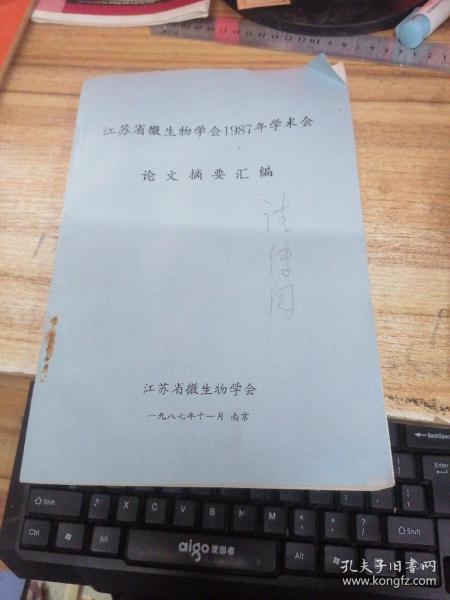 江苏省微生物学会1987年学术会
论文摘要汇编
请传阅
江苏省微生物学会
一九八七年十一月 南京
BackSpace
Enter
Shift
Shift
Ctrl
Alt
Alt
aigo爱国者
B
N
M
孔夫子旧书网
www.kongfz.com